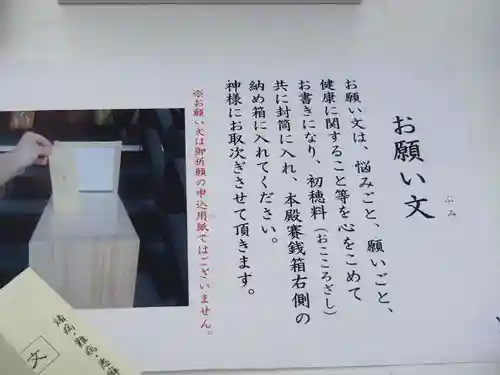 お願い文
ぶみ
お願い文は、悩みごと、願いごと、
健康に関すること等を心をこめて
お書きになり、初穂料（おこころざし）
共に封筒に入れ、本殿賽銭箱右側の
納め箱に入れてください。
神様にお取次ぎさせて頂きます。
※お願い文は御祈願の申込用紙ではございません。
諸病・難病・悪癖
文